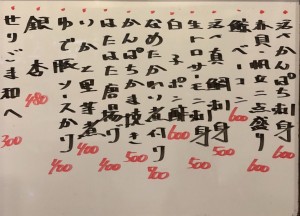 活〆かんぱち刺身 600
春貝帆立二点盛り 600
鯨ベーコン 600
活〆真鯛刺身 500
生トロサーモン刺身 500
白子ポン酢 600
なめたかれい煮付け
かんぱちかま焼き 500
はたはた唐揚げ 400
いかと里芋煮 400
ゆで豚ソースがけ 400
銀杏 480
せりごま和へ 300